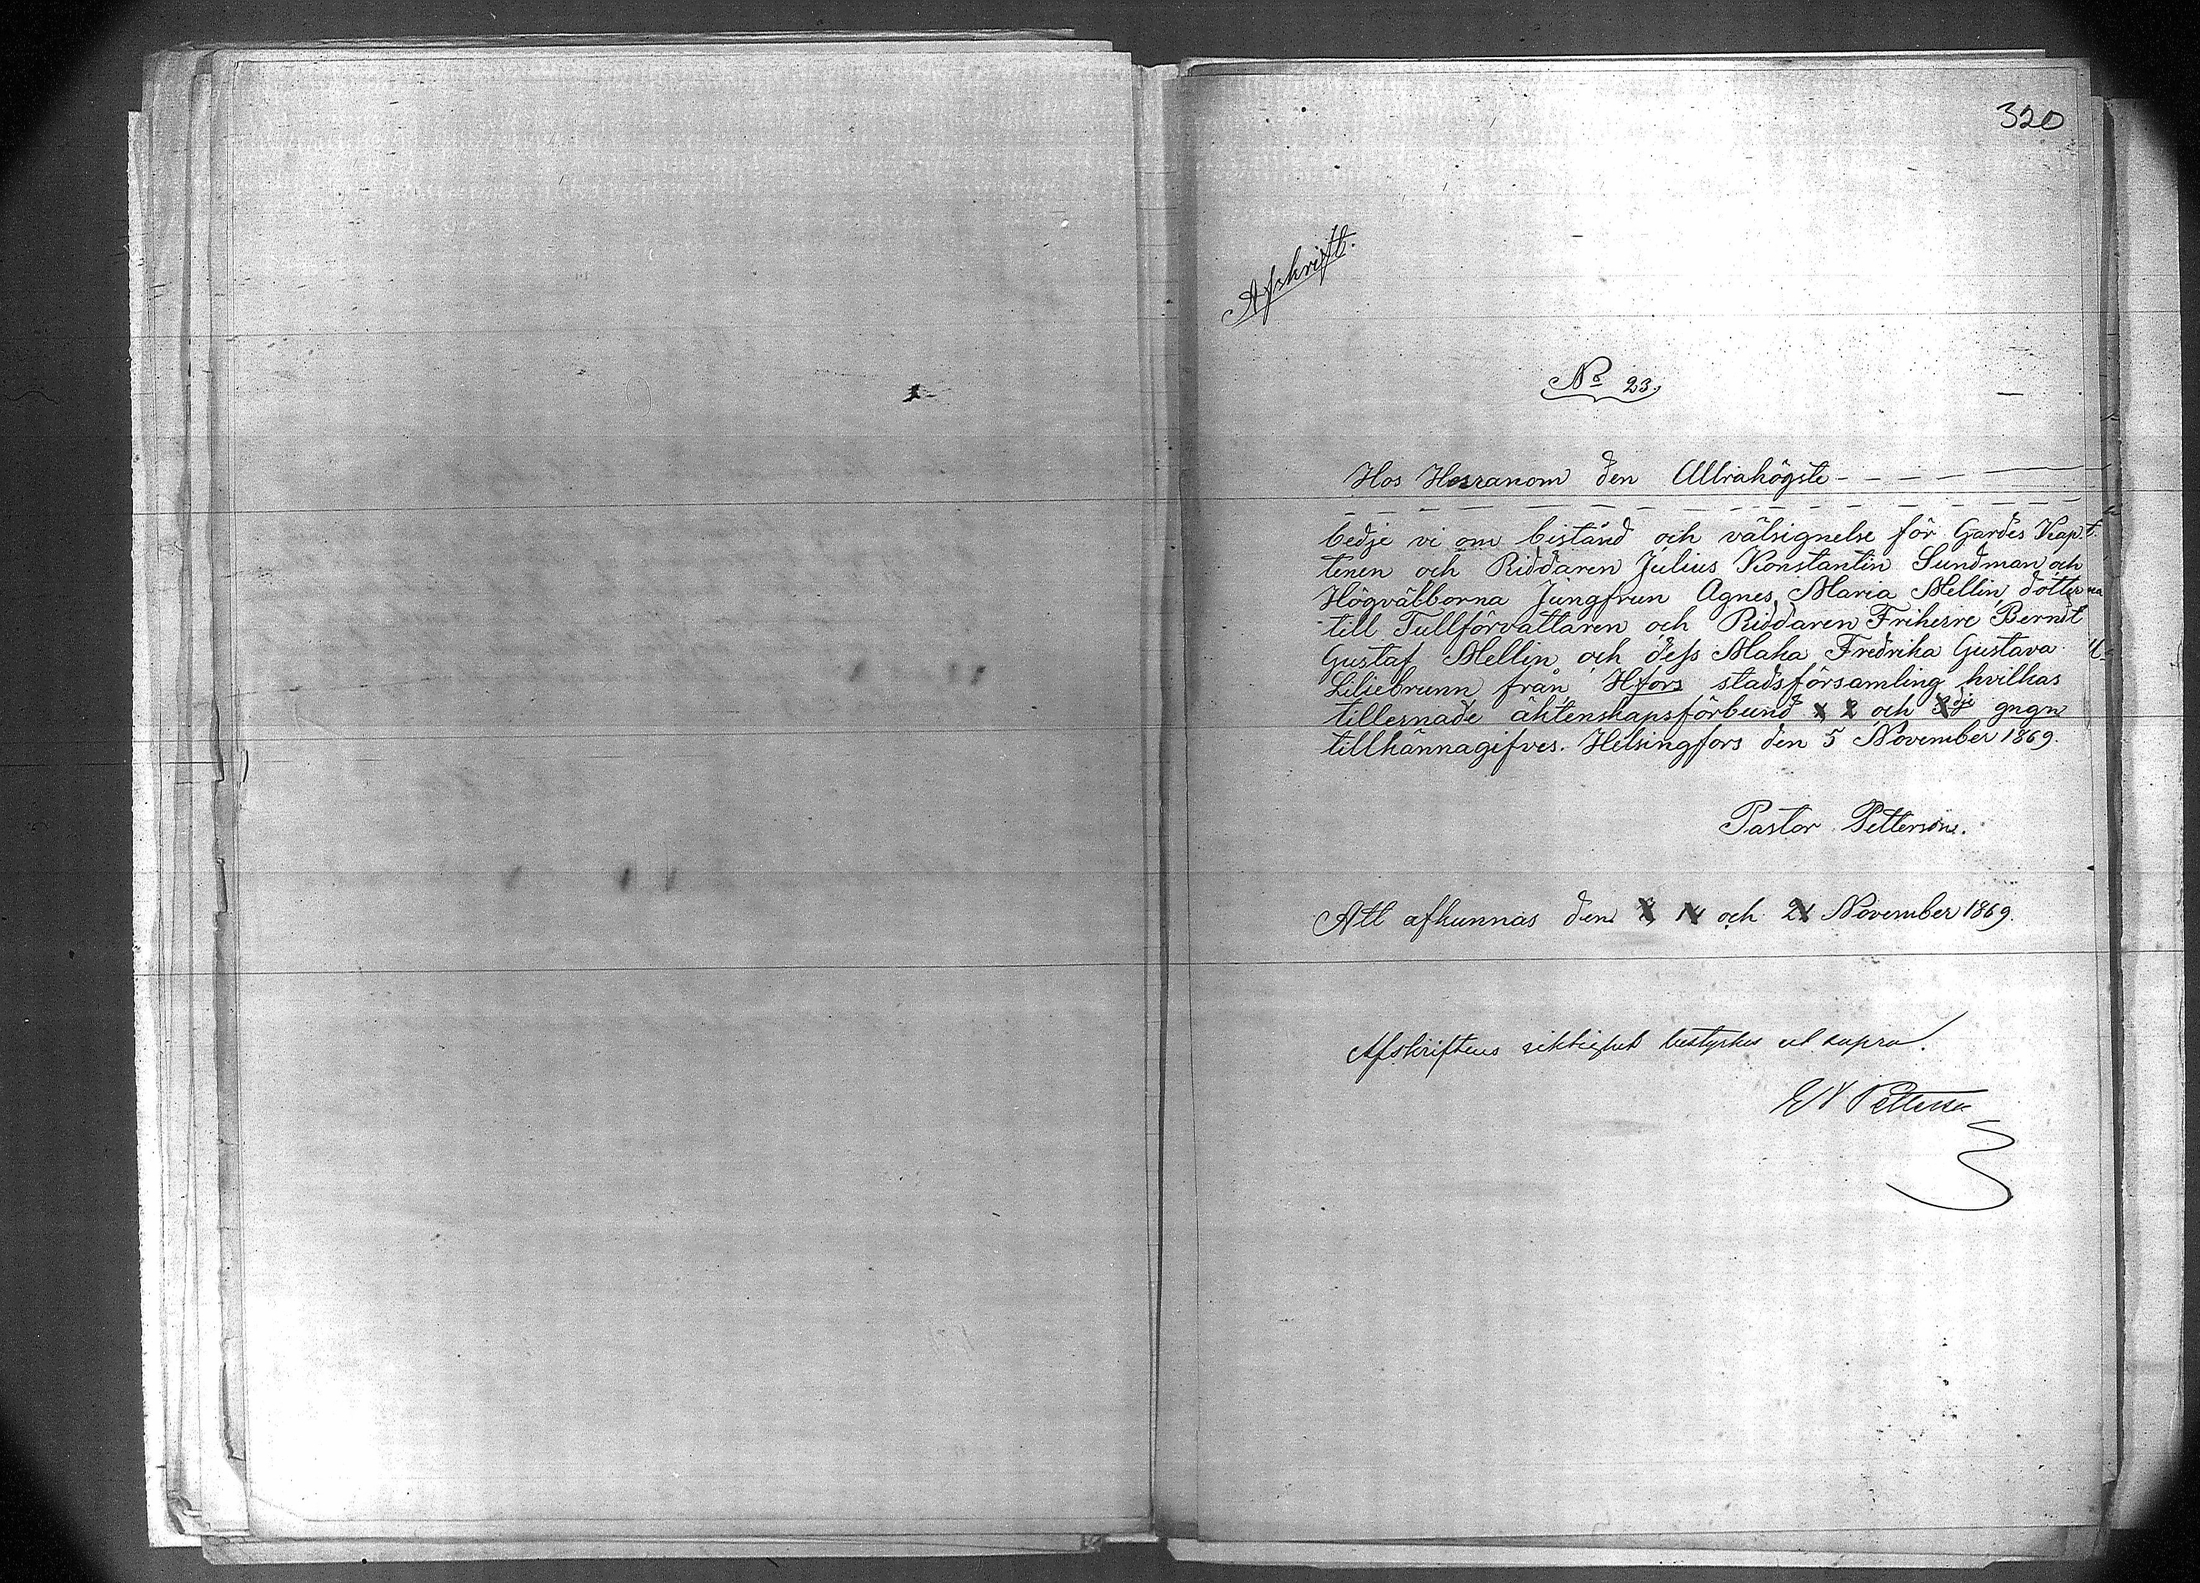 320
Afskrift.
No 23.
Hos Herranom den Allrahögste - - - -
bedje vi om bistånd och välsignelse för Gardes Kap
tenen och Riddaren Julius Konstantin Sundman och
Högvälborna Jungfrun Agnes Maria Mellin, dotter
till Tullförvaltaren och Riddaren Friherre Berndt
Gustaf Mellin och dess Maka Fredrika Gustava
Liliebrunn från Hfors stadsförsamling hvilkas
tillernade äktenskapsförbund 1 2 och 3dje gngn
tillkännagifves. Helsingfors den 5 November 1869.
Pastor Petterson.
Att afkunnas den 14 och 21 November 1869.
Afskriftens riktighet bestyrkes ut supra.
Petterson